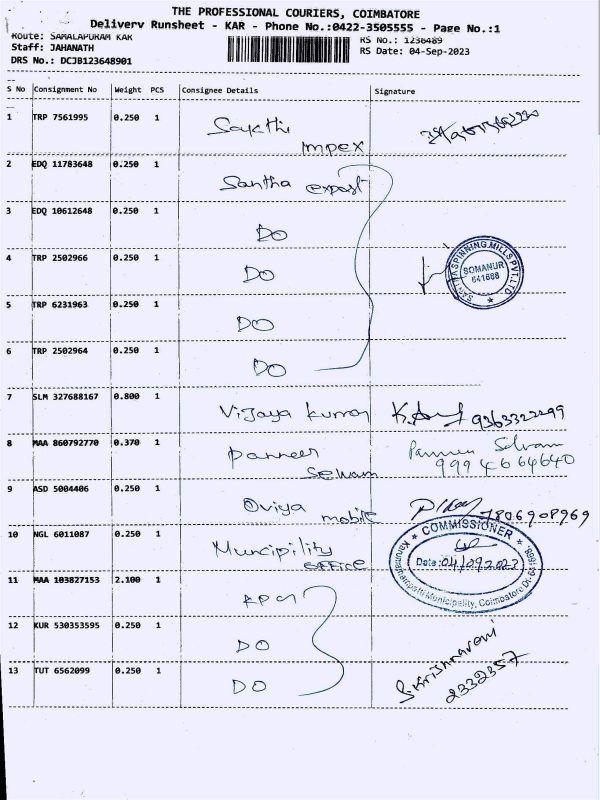 THE PROFESSIONAL COURIERS, COIMBATORE
Delivery Runsheet - KAR - Phone No.:0422-3505555 - Page No.:1
Route: SAMALAPURAM KAR
RS No.: 1236489
Staff: JAHANATH
RS Date: 04-Sep-2023
DRS No.: DCJB123648901
S No Consignment No Weight PCS Consignee Details Signature
1 TRP 7561995 0.250 1
Impex
2 EDQ 11783648 0.250 1 Santha export
3 EDQ 10612648 0.250 1 DO
4 TRP 2502966 0.250 1 DO
SPINNING MILLS PVT. LTD
SOMANUR
641668
5 TRP 6231963 0.250 1 DO
6 TRP 2502964 0.250 1 DO
7 SLM 327688167 0.800 1 Vijaya kumar 9363322299
8 MAA 860792770 0.370 1 panneer Selvam
Pannir Selvam
9994664640
9 ASD 5004406 0.250 1 Oviya mobile 7806908969
10 NGL 6011087 0.250 1 Muncipility office
COMMISSIONER
Date: 04/09/2023
Karumathampatti Municipality, Coimbatore Dt-
11 MAA 103827153 2.100 1
12 KUR 530353595 0.250 1 DO
13 TUT 6562099 0.250 1 DO
2332357